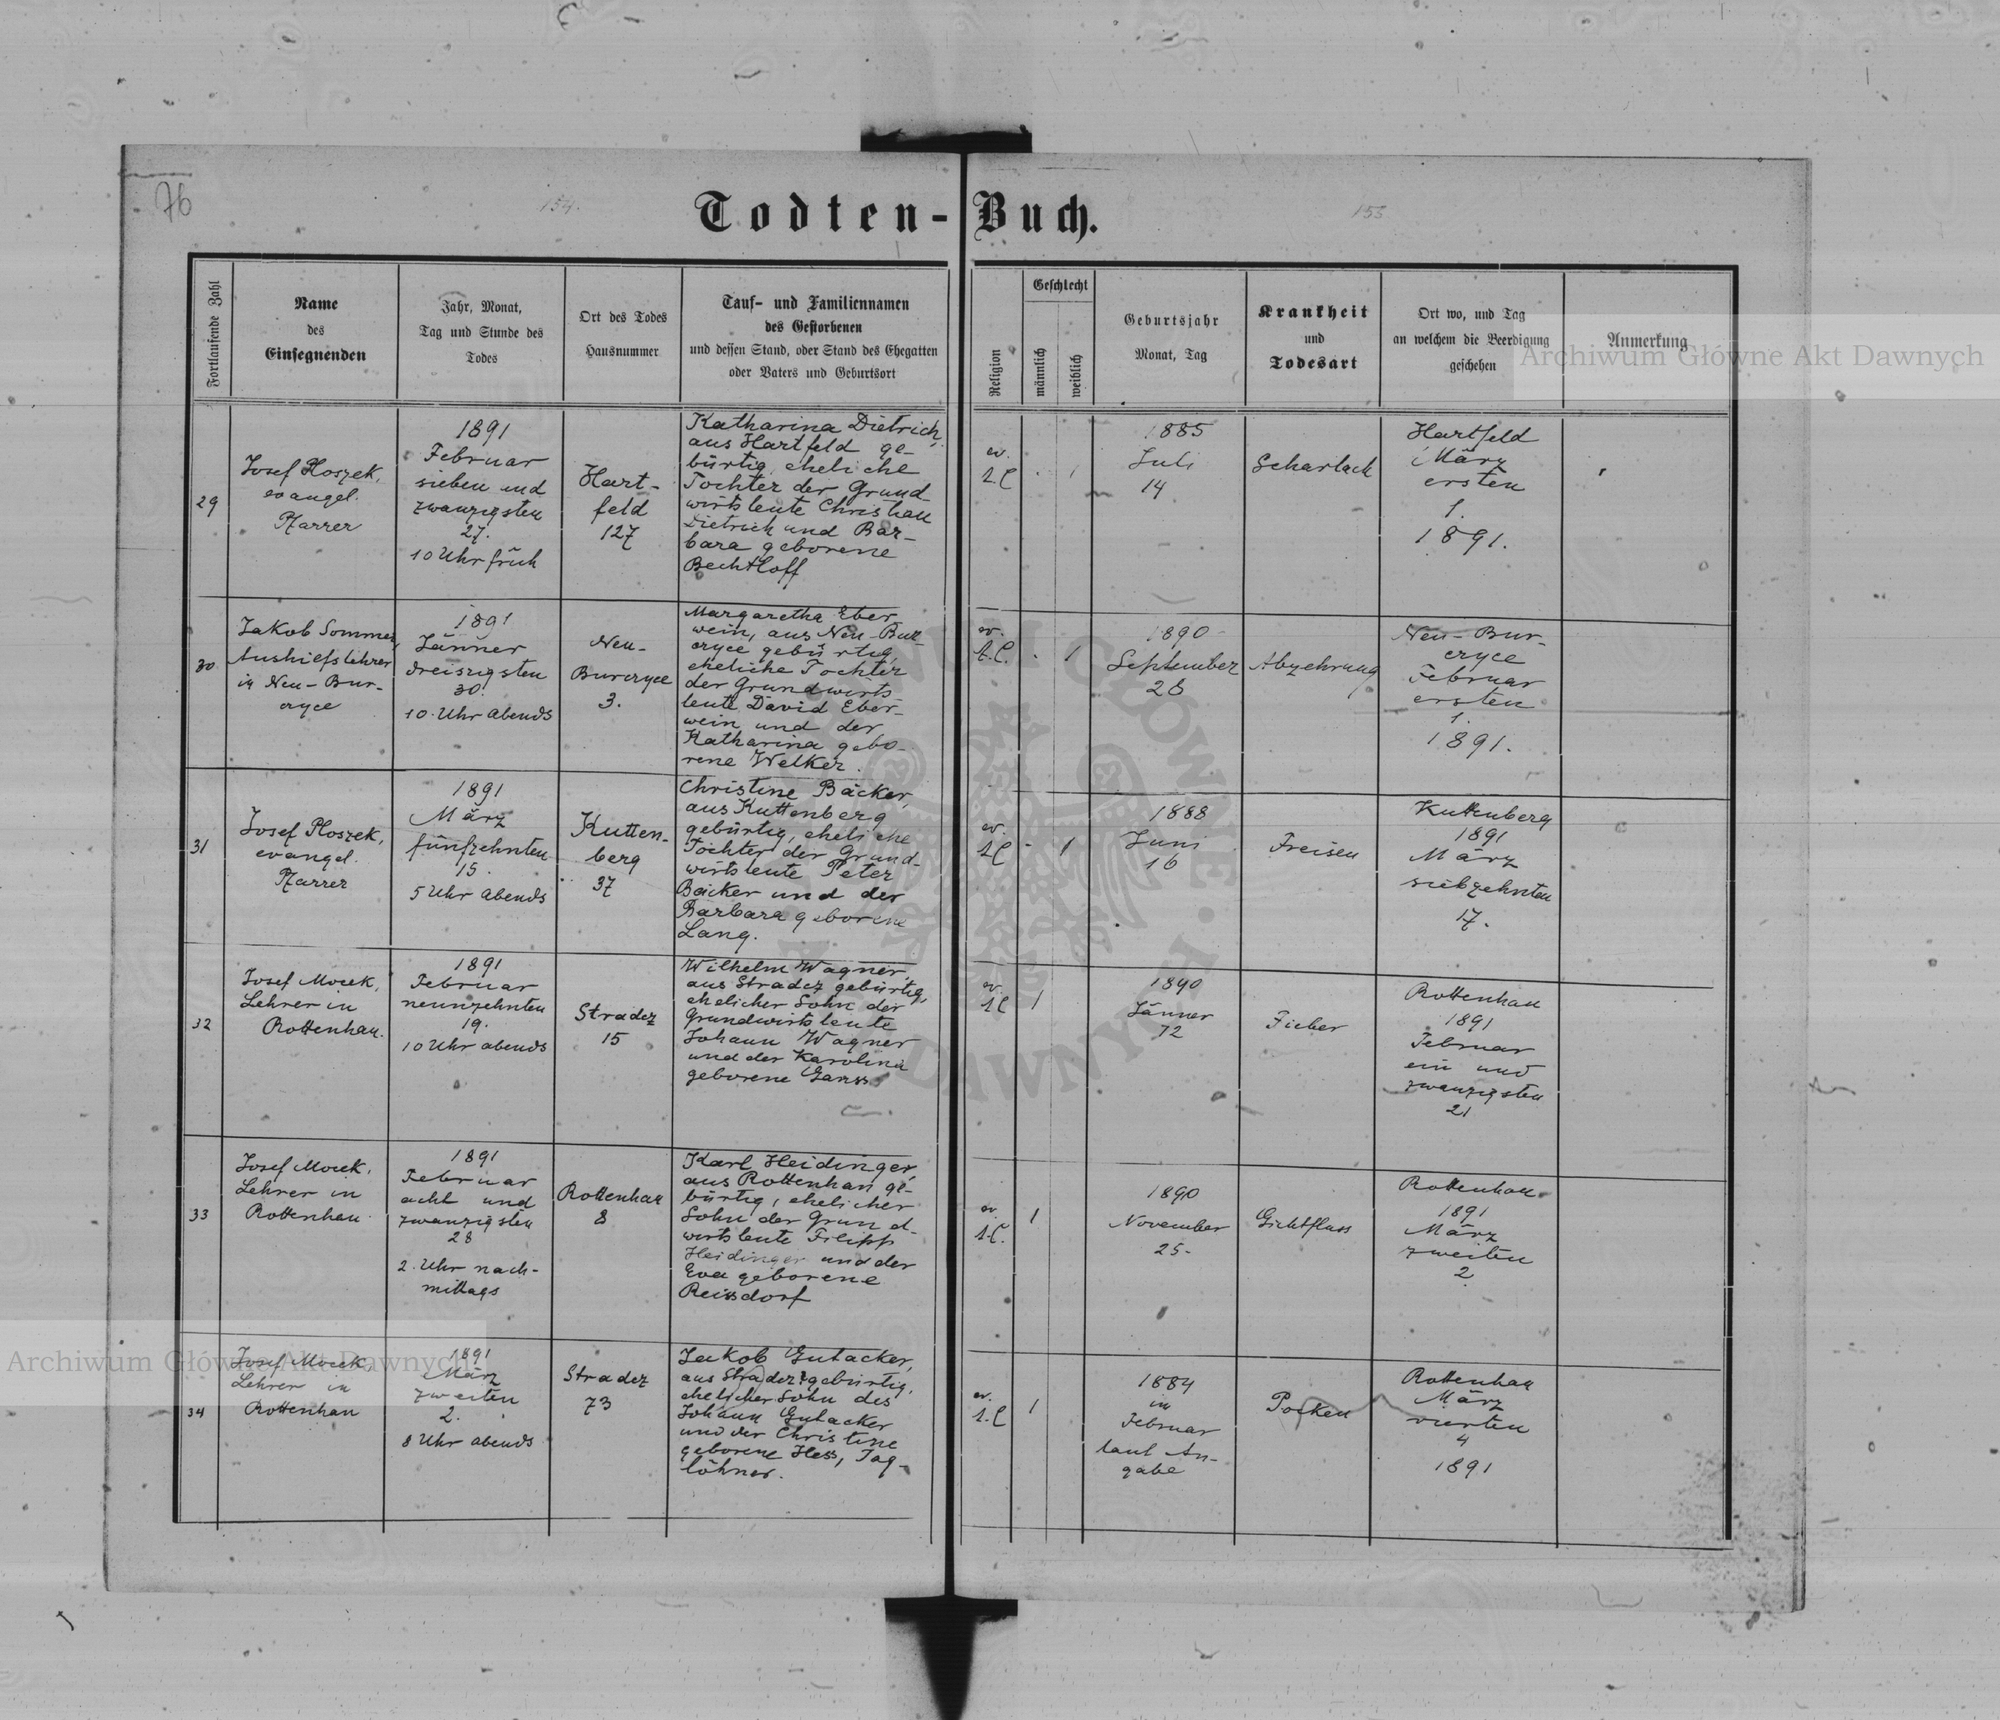 76
154.
155
Todten-Buch.
Fortlaufende Zahl
Name
des
Einsegnenden
Jahr, Monat,
Tag und Stunde des
Todes
Ort des Todes
Hausnummer
Tauf- und Familiennamen
des Gestorbenen
und dessen Stand, oder Stand des Ehegatten
oder Vaters und Geburtsort
Religion
Geschlecht
männlich
weiblich
Geburtsjahr
Monat, Tag
Krankheit
und
Todesart
Ort wo, und Tag
an welchem die Beerdigung
geschehen
Anmerkung
Archiwum Główne Akt Dawnych
29
Josef Ploszek,
evangel.
Pfarrer
1891
Februar
sieben und
zwanzigsten
27.
10 Uhr früh
Hart-
feld
127
Katharina Dietrich,
aus Hartfeld ge-
bürtig, eheliche
Tochter der Grund
wirtsleute Christian
Dietrich und Bar-
bara geborene
Bechtloff
ev.
A.C
1
1885
Juli
14
Scharlach
Hartfeld
März
ersten
1.
1891.
30
Jakob Sommer,
Aushilfslehrer
in Neu-Bur-
czyce
1891
Jänner
dreiszigsten
30.
10. Uhr abends
Neu-
Burczyce
3.
Margaretha Eber
wein, aus Neu-Bur
czyce gebürtig,
eheliche Tochter
der Grundwirts
leute David Eber-
wein und der
Katharina gebo-
rene Welker.
ev.
A.C.
1
1890
September
28
Abzehrung
Neu-Bur-
czyce
Februar
ersten
1.
1891.
31
Josef Ploszek,
evangel.
Pfarrer
1891
März
fünfzehnten
15.
5 Uhr abends
Kutten-
berg
37
Christine Bäcker,
aus Kuttenberg
gebürtig, eheliche
Tochter der Grund-
wirtsleute Peter
Bäcker und der
Barbara geborene
Lang.
ev.
A.C
1
1888
Juni
16
Freisen
Kuttenberg
1891
März
siebzehnten
17.
32
Josef Mocek,
Lehrer in
Rottenhan.
1891
Februar
neunzehnten
19.
10 Uhr abends
Stradcz
15
Wilhelm Wagner,
aus Stradcz gebürtig,
ehelicher Sohn der
Grundwirtsleute
Johann Wagner
und der Karolina
geborene Ganss
ev.
A.C
1
1890
Jänner
12
Fieber
Rottenhan
1891
Februar
ein und
zwanzigsten
21
33
Josef Mocek,
Lehrer in
Rottenhan.
1891
Februar
acht und
zwanzigsten
28
2. Uhr nach-
mittags
Rottenhan
8
Karl Heidinger,
aus Rottenhan ge-
bürtig, ehelicher
Sohn der Grund-
wirtsleute Filipp
Heidinger und der
Eva geborene
Reissdorf
ev.
A.C.
1
1890
November
25.
Gichtfluss
Rottenhan
1891
März
zweiten
2
34
Josef Mocek,
Lehrer in
Rottenhan
1891
März
zweiten
2.
8 Uhr abends
Stradcz
73
Jakob Gutacker,
aus Stradcz gebürtig,
ehelicher Sohn des
Johann Gutacker
und der Christine
geborene Hess, Tag-
löhner.
ev.
A.C
1
1884
in
Februar
laut An-
gabe
Pocken
Rottenhan
März
vierten
4
1891
Archiwum Główne Akt Dawnych